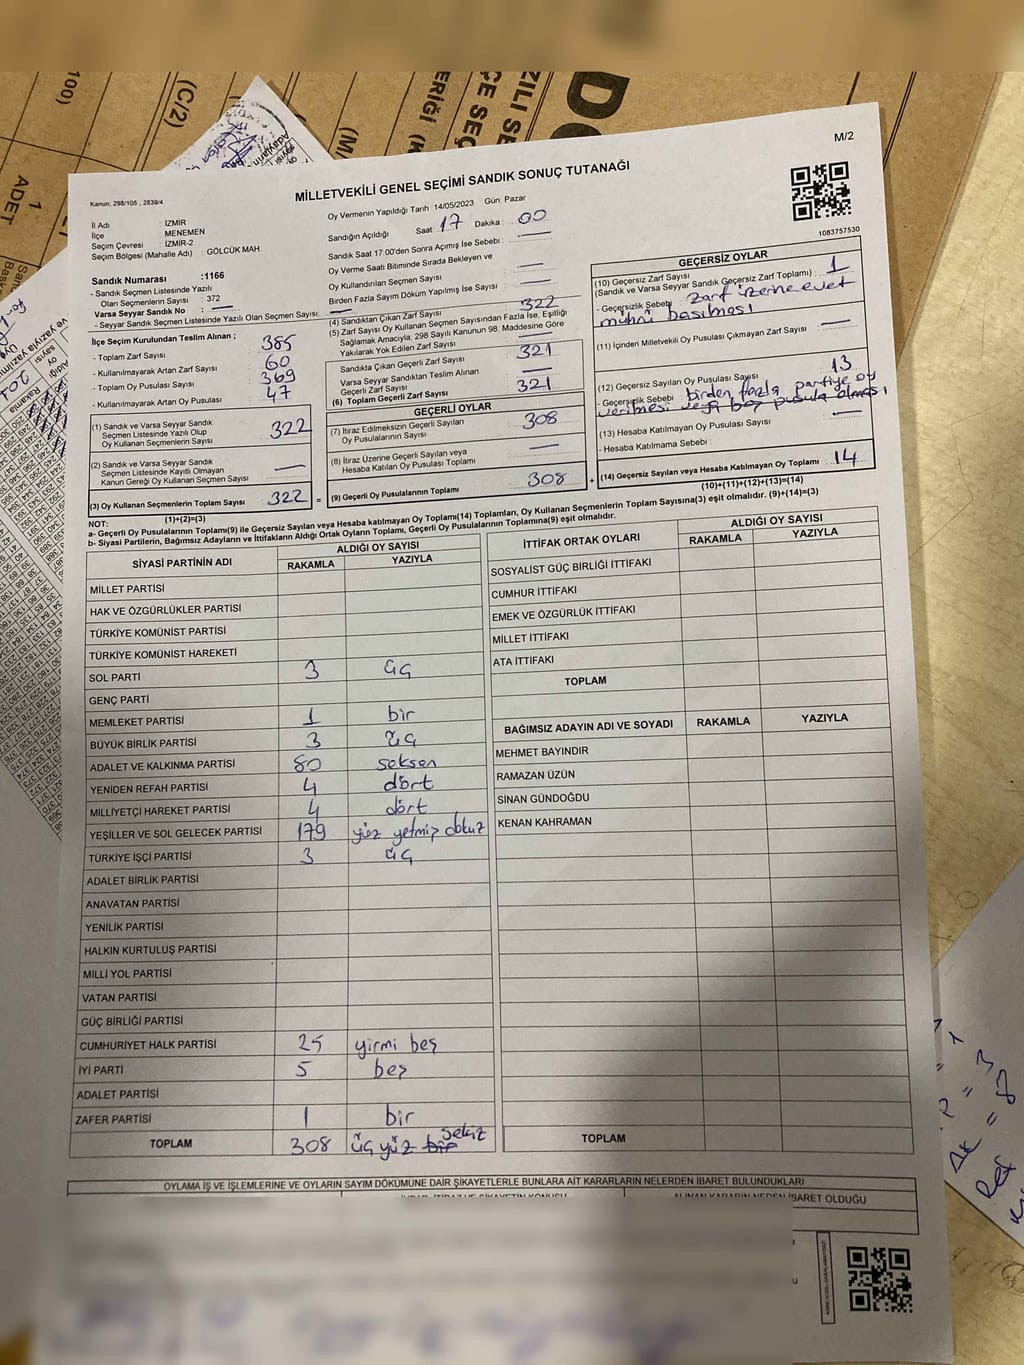 100)
(C/2)
ADET
1
ERİĞİ (K
ÇE SEÇ
ZILI SE
(M/
DO
M/2
Kanun; 298/105 , 2839/4
MİLLETVEKİLİ GENEL SEÇİMİ SANDIK SONUÇ TUTANAĞI
1083757530
İl Adı : İZMİR
İlçe MENEMEN
Seçim Çevresi : İZMİR-2
Seçim Bölgesi (Mahalle Adı) : GÖLCÜK MAH.
Sandık Numarası :1166
- Sandık Seçmen Listesinde Yazılı
Olan Seçmenlerin Sayısı : 372
Varsa Seyyar Sandık No : —
- Seyyar Sandık Seçmen Listesinde Yazılı Olan Seçmen Sayısı : —
İlçe Seçim Kurulundan Teslim Alınan ;
- Toplam Zarf Sayısı 385
- Kullanılmayarak Artan Zarf Sayısı 60
- Toplam Oy Pusulası Sayısı 369
- Kullanılmayarak Artan Oy Pusulası 47
(1) Sandık ve Varsa Seyyar Sandık
Seçmen Listesinde Yazılı Olup
Oy Kullanan Seçmenlerin Sayısı 322
(2) Sandık ve Varsa Seyyar Sandık
Seçmen Listesinde Kayıtlı Olmayan
Kanun Gereği Oy Kullanan Seçmen Sayısı —
(3) Oy Kullanan Seçmenlerin Toplam Sayısı 322 =
(1)+(2)=(3)
Oy Vermenin Yapıldığı Tarih :14/05/2023 Gün: Pazar
Sandığın Açıldığı Saat : 17 Dakika : 00
Sandık Saat 17:00'den Sonra Açımış İse Sebebi : —
Oy Verme Saati Bitiminde Sırada Bekleyen ve
Oy Kullandırılan Seçmen Sayısı —
Birden Fazla Sayım Döküm Yapılmış İse Sayısı —
(4) Sandıktan Çıkan Zarf Sayısı 322
(5) Zarf Sayısı Oy Kullanan Seçmen Sayısından Fazla İse, Eşitliği
Sağlamak Amacıyla, 298 Sayılı Kanunun 98. Maddesine Göre
Yakılarak Yok Edilen Zarf Sayısı —
Sandıkta Çıkan Geçerli Zarf Sayısı 321
Varsa Seyyar Sandıktan Teslim Alınan
Geçerli Zarf Sayısı —
(6) Toplam Geçerli Zarf Sayısı 321
GEÇERLİ OYLAR
(7) İtiraz Edilmeksizin Geçerli Sayılan
Oy Pusulalarının Sayısı 308
(8) İtiraz Üzerine Geçerli Sayılan veya
Hesaba Katılan Oy Pusulası Toplamı —
(9) Geçerli Oy Pusulalarının Toplamı 308 +
GEÇERSİZ OYLAR
(10) Geçersiz Zarf Sayısı
(Sandık ve Varsa Seyyar Sandık Geçersiz Zarf Toplamı) : 1
- Geçersizlik Sebebi Zarf üzerine evet
mührü basılması
(11) İçinden Milletvekili Oy Pusulası Çıkmayan Zarf Sayısı —
(12) Geçersiz Sayılan Oy Pusulası Sayısı 13
- Geçersizlik Sebebi : birden fazla partiye oy
verilmesi veya boş pusula olması
(13) Hesaba Katılmayan Oy Pusulası Sayısı —
- Hesaba Katılmama Sebebi :
(14) Geçersiz Sayılan veya Hesaba Katılmayan Oy Toplamı 14
(10)+(11)+(12)+(13)=(14)
NOT:
a- Geçerli Oy Pusulalarının Toplamı(9) ile Geçersiz Sayılan veya Hesaba katılmayan Oy Toplamı(14) Toplamları, Oy Kullanan Seçmenlerin Toplam Sayısına(3) eşit olmalıdır. (9)+(14)=(3)
b- Siyasi Partilerin, Bağımsız Adayların ve İttifakların Aldığı Ortak Oyların Toplamı, Geçerli Oy Pusulalarının Toplamına(9) eşit olmalıdır.
SİYASİ PARTİNİN ADI ALDIĞI OY SAYISI
RAKAMLA YAZIYLA
MİLLET PARTİSİ
HAK VE ÖZGÜRLÜKLER PARTİSİ
TÜRKİYE KOMÜNİST PARTİSİ
TÜRKİYE KOMÜNİST HAREKETİ
SOL PARTİ 3 üç
GENÇ PARTİ
MEMLEKET PARTİSİ 1 bir
BÜYÜK BİRLİK PARTİSİ 3 üç
ADALET VE KALKINMA PARTİSİ 80 seksen
YENİDEN REFAH PARTİSİ 4 dört
MİLLİYETÇİ HAREKET PARTİSİ 4 dört
YEŞİLLER VE SOL GELECEK PARTİSİ 179 yüz yetmiş dokuz
TÜRKİYE İŞÇİ PARTİSİ 3 üç
ADALET BİRLİK PARTİSİ
ANAVATAN PARTİSİ
YENİLİK PARTİSİ
HALKIN KURTULUŞ PARTİSİ
MİLLİ YOL PARTİSİ
VATAN PARTİSİ
GÜÇ BİRLİĞİ PARTİSİ
CUMHURİYET HALK PARTİSİ 25 yirmi beş
İYİ PARTİ 5 beş
ADALET PARTİSİ
ZAFER PARTİSİ 1 bir
TOPLAM 308 üç yüz bir sekiz
İTTİFAK ORTAK OYLARI ALDIĞI OY SAYISI
RAKAMLA YAZIYLA
SOSYALİST GÜÇ BİRLİĞİ İTTİFAKI
CUMHUR İTTİFAKI
EMEK VE ÖZGÜRLÜK İTTİFAKI
MİLLET İTTİFAKI
ATA İTTİFAKI
TOPLAM
BAĞIMSIZ ADAYIN ADI VE SOYADI RAKAMLA YAZIYLA
MEHMET BAYINDIR
RAMAZAN ÜZÜN
SİNAN GÜNDOĞDU
KENAN KAHRAMAN
TOPLAM
OYLAMA İŞ VE İŞLEMLERİNE VE OYLARIN SAYIM DÖKÜMÜNE DAİR ŞİKAYETLERLE BUNLARA AİT KARARLARIN NELERDEN İBARET BULUNDUKLARI
ALINAN KARARIN NEDEN İBARET OLDUĞU